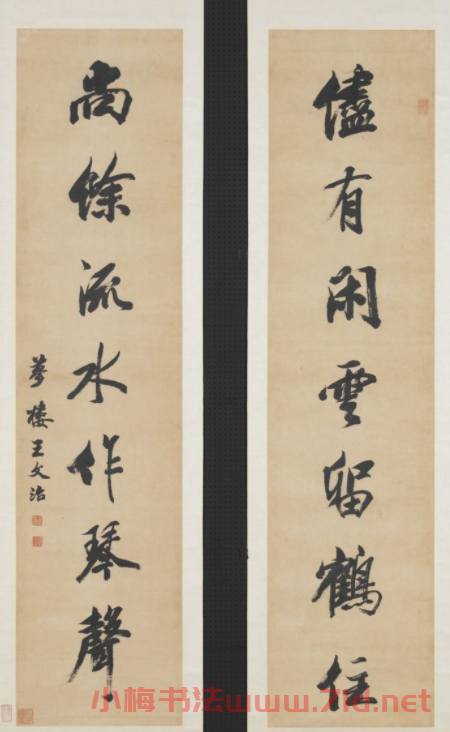 儘有閑雲留鶴住
尚餘流水作琴聲
夢樓王文治
小梅书法www.71d.net